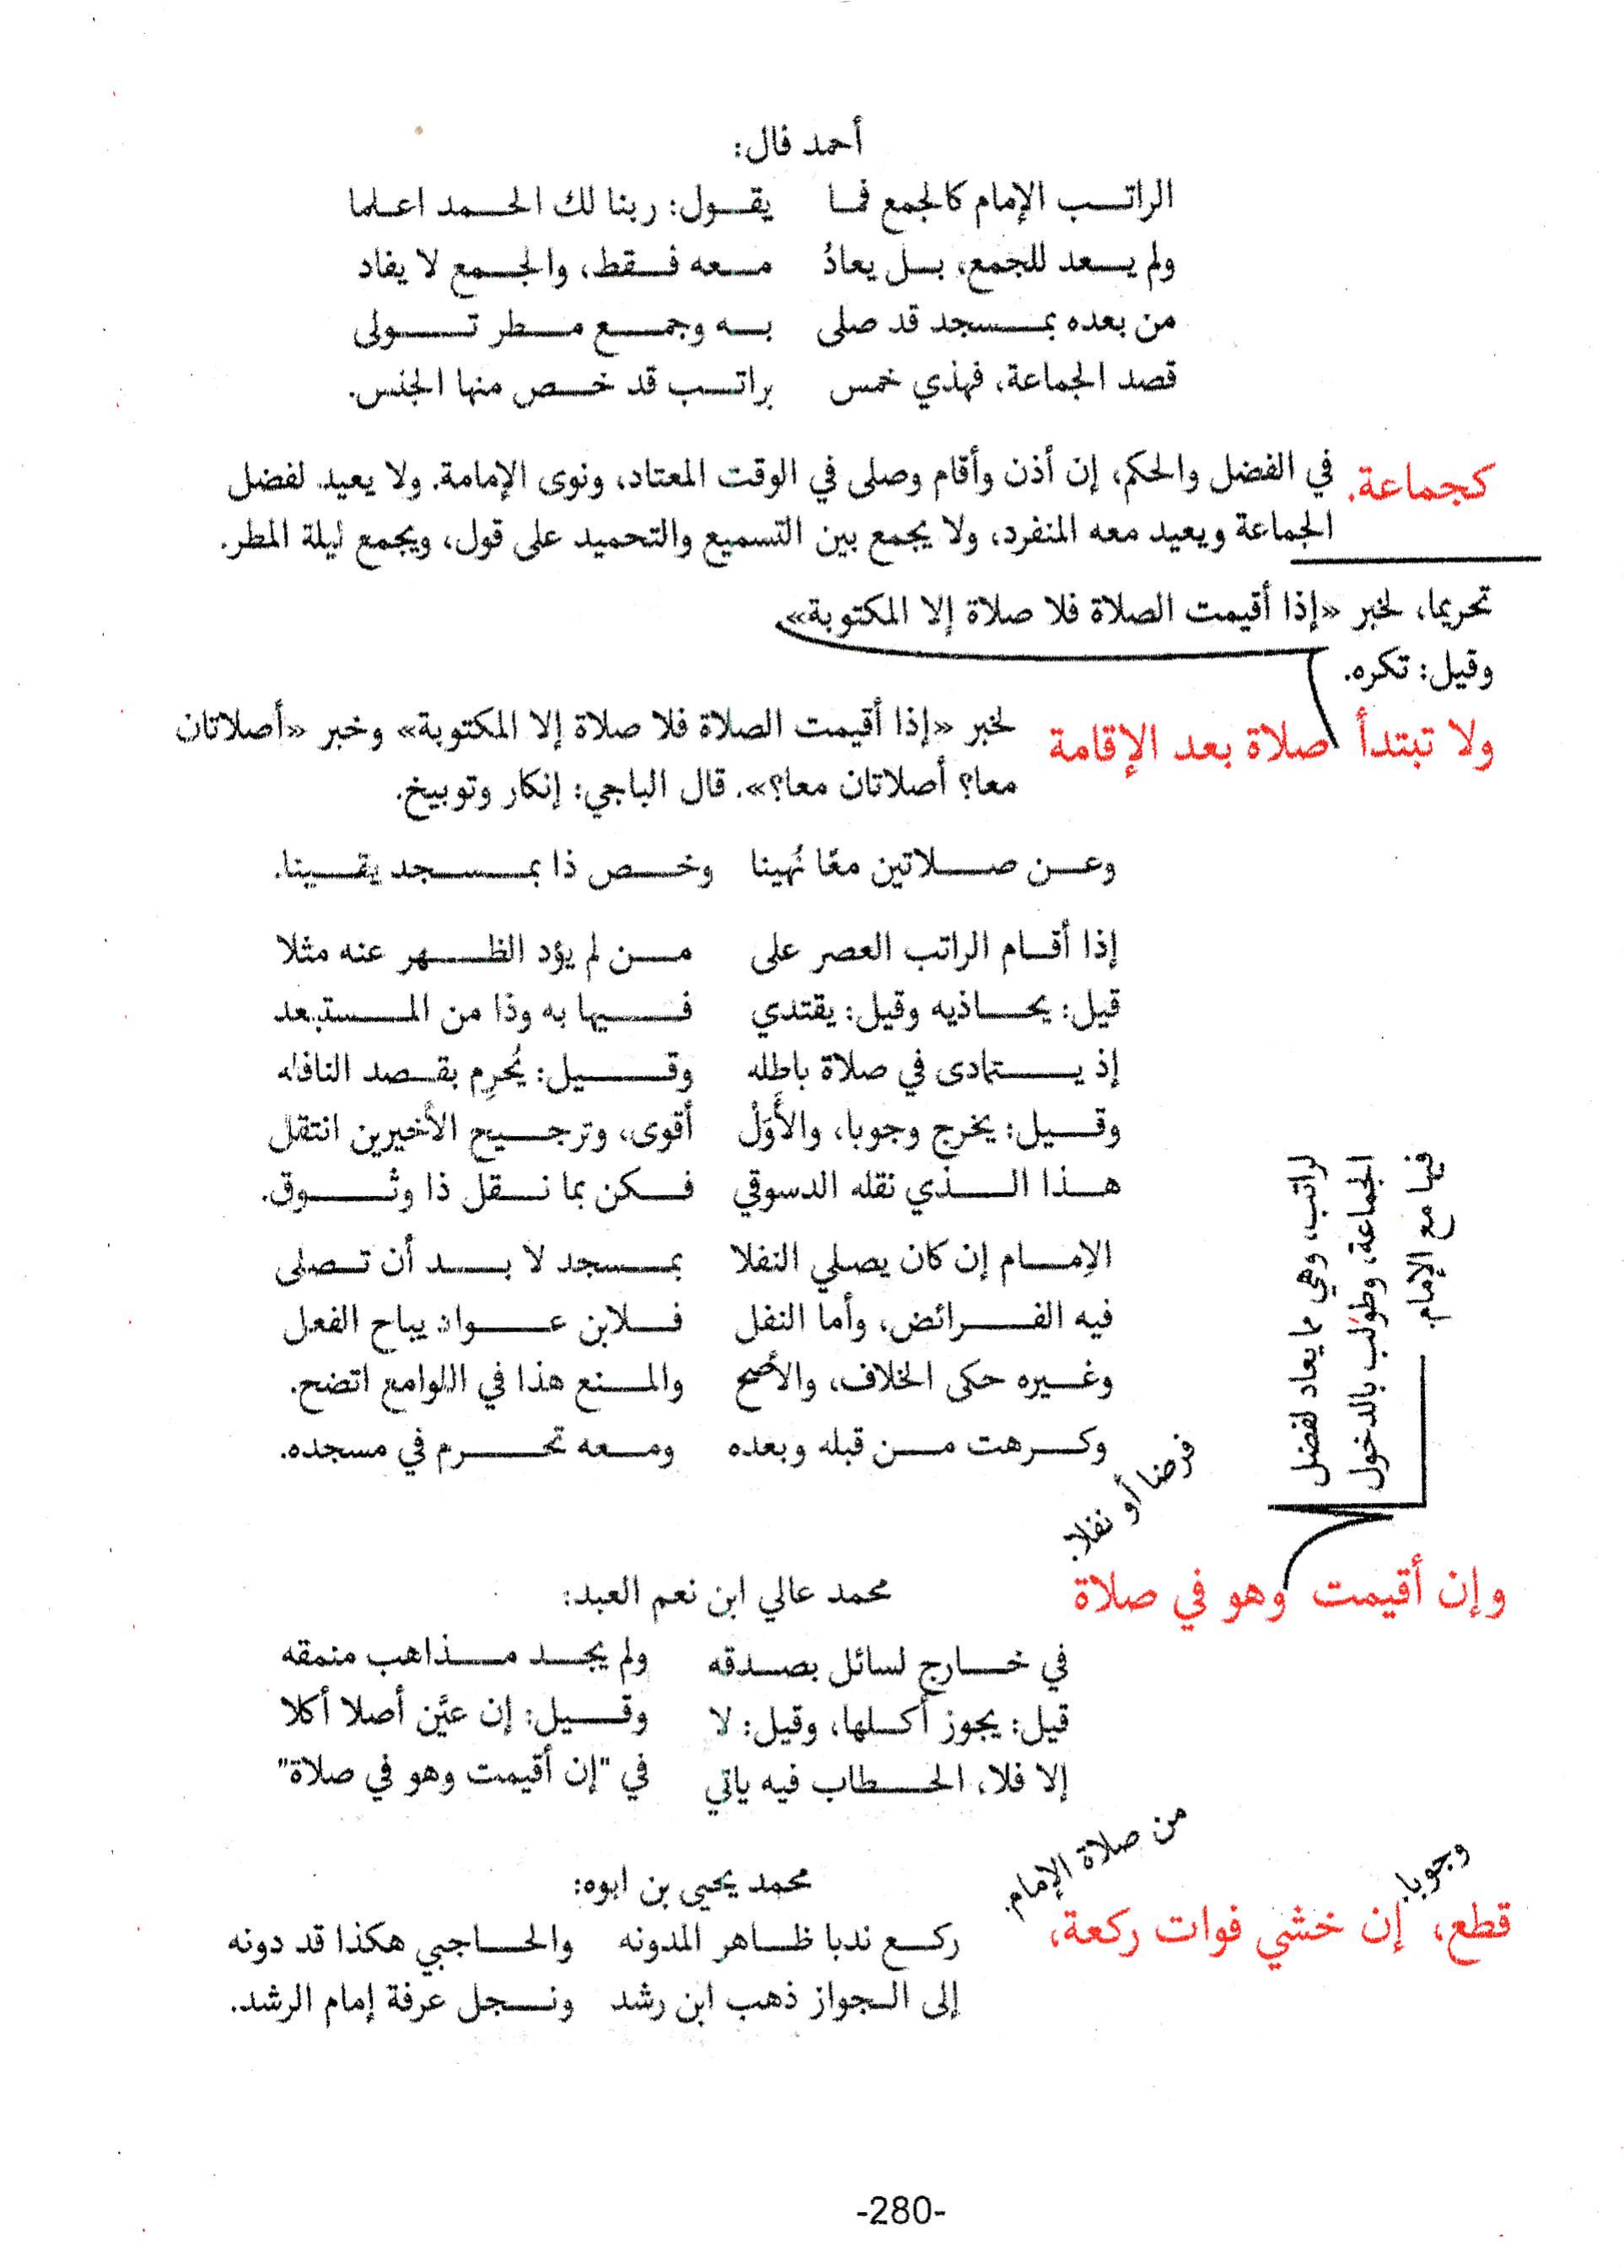 أحمد فال:
الراتب الإمام كالجمع فما يقول: ربنا لك الحمد اعلما
ولم يعد للجمع، بل يعادُ معه فقط، والجمع لا يفاد
من بعده بمسجد قد صلى به وجمع مطر تولى
قصد الجماعة، فهذي خمس براتب قد خص منها الجنس.
كجماعة. في الفضل والحكم، إن أذن وأقام وصلى في الوقت المعتاد، ونوى الإمامة. ولا يعيد لفضل
الجماعة ويعيد معه المنفرد، ولا يجمع بين التسميع والتحميد على قول، ويجمع ليلة المطر.
تحريما، لخبر «إذا أقيمت الصلاة فلا صلاة إلا المكتوبة»
وقيل: تكره.
ولا تبتدأ صلاة بعد الإقامة لخبر «إذا أقيمت الصلاة فلا صلاة إلا المكتوبة» وخبر «أصلاتان
معا؟ أصلاتان معا؟». قال الباجي: إنكار وتوبيخ.
وعن صلاتين معًا نُهينا وخص ذا بمسجد يقينا.
إذا أقام الراتب العصر على من لم يؤد الظهر عنه مثلا
قيل: يحاذيه وقيل: يقتدي فيها به وذا من المستبعد
إذ يتمادى في صلاة باطله وقيل: يُحرِم بقصد النافله
وقيل: يخرج وجوبا، والأَوَلْ أقوى، وترجيح الأخيرين انتقل
هذا الذي نقله الدسوقي فكن بما نقل ذا وثوق.
الإمام إن كان يصلي النفلا بمسجد لا بد أن تصلى
فيه الفرائض، وأما النفل فلابن عواد يباح الفعل
وغيره حكى الخلاف، والأصح والمنع هذا في اللوامع اتضح.
وكرهت من قبله وبعده ومعه تحرم في مسجده.
لراتب، وهي مما يعاد لفضل
الجماعة، وطولب بالدخول
فيها مع الإمام.
فرضا أو نفلا.
وإن أقيمت وهو في صلاة محمد عالي ابن نعم العبد:
في خارج لسائل بصدقه ولم يجد مذاهب منمقه
قيل: يجوز أكلها، وقيل: لا وقيل: إن عيَّن أصلا أكلا
إلا فلا، الحطاب فيه ياتي في "إن أقيمت وهو في صلاة"
وجوبا.
من صلاة الإمام.
قطع، إن خشي فوات ركعة، محمد يحيى بن ابوه:
ركع ندبا ظاهر المدونه والحاجبي هكذا قد دونه
إلى الجواز ذهب ابن رشد ونجل عرفة إمام الرشد.
-280-